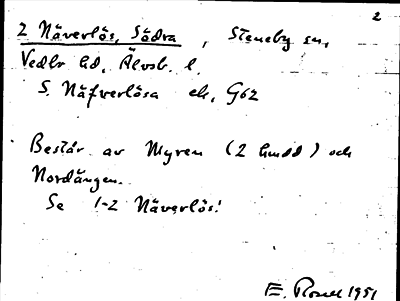 2
2 Näverlös, Södra, Steneby sn,
Vedbo hd, Älvsb. l.
S. Näfverlösa ek, G62
Består av Myren (2 hmdd) och
Nordängen.
Se 1-2 Näverlös!
E. Rosell 1951